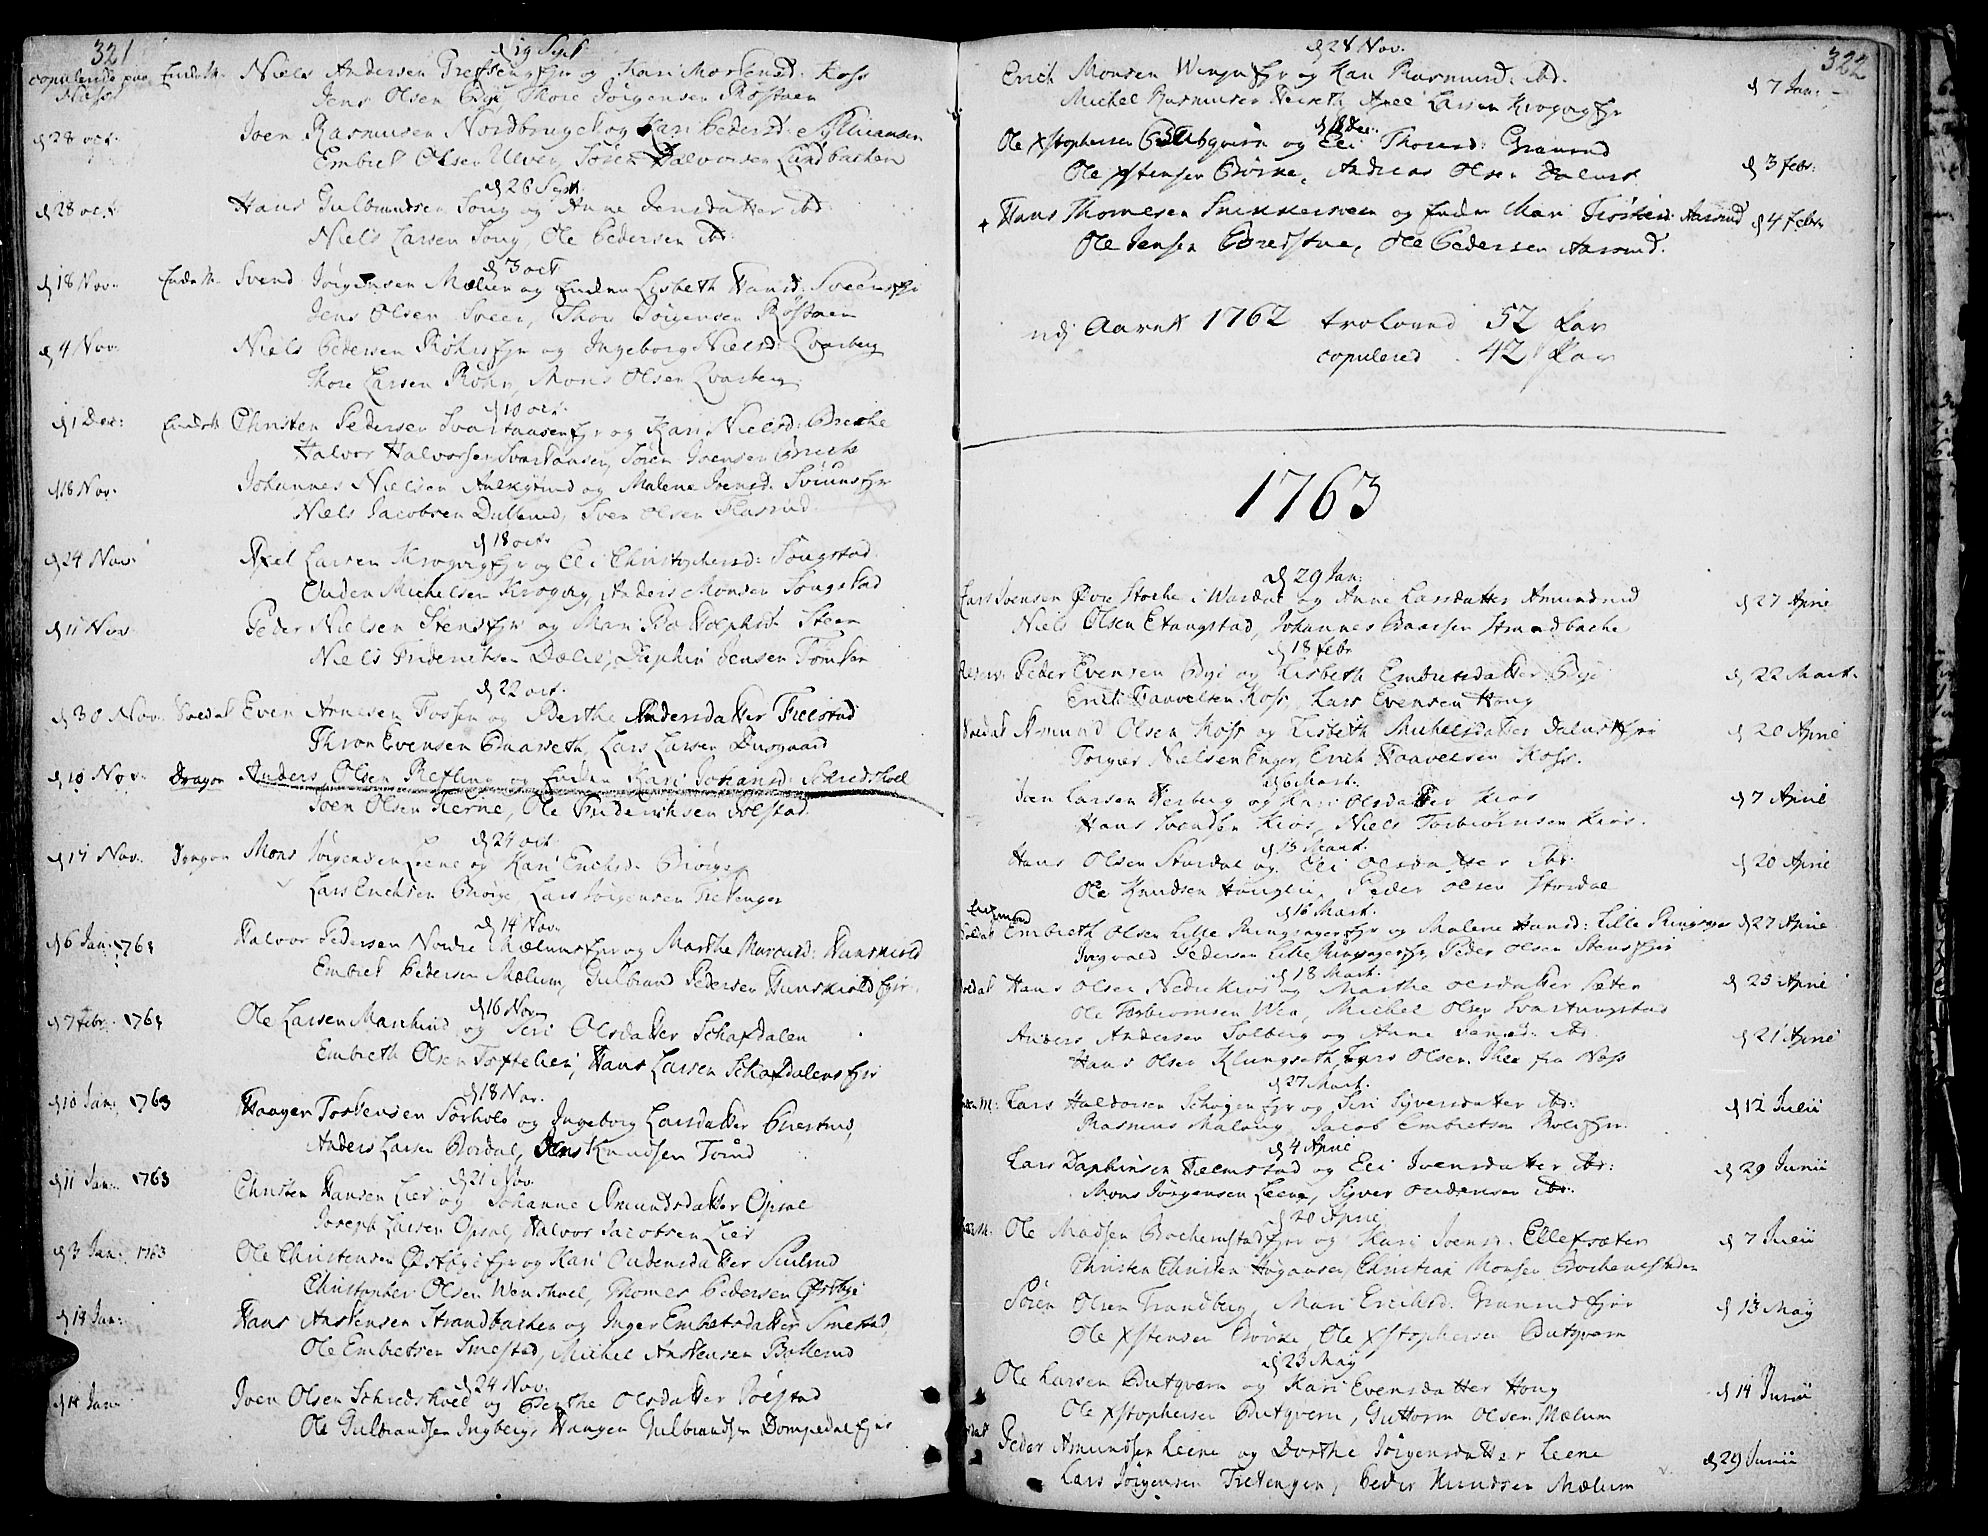 321
d 19 Sept
copulerede paa Næss
Enckem. Niels Andersen Grefsengejer og Kari Mortensd: Koss
Jens Olsen Bye, Thore Jørgensen Røstuen
d 28 oct. Joen Rasmusen Nordbruget og Kari Pedersd:
Embret Olsen Ulven, Søren Halvorsen Lundbachen
d 26 Sept.
d 28 oct. Hans Gulbrandsen Song og Anne Jensdatter ibd.
Niels Larsen Song, Ole Pedersen ibd.
d 3 oct
d 18 Nov. Enckem. Svend Jørgensen Mælum og Encken Lisbeth Hansd: Sveensejer
Jens Olsen Sveen, Thore Jørgensen Røstuen
d 4 Nov. Niels Pedersen Røhrsejer og Ingeborg Nielsd: Qvarberg
Thore Larsen Røhr, Mons Olsen Qvarberg
d 10 oct.
d 1 Dec: Enckem Christen Pedersen Svartaasenejer og Kari Nielsd: Breche
Halvor Halvorsen Svartaasen, Søren Joensen Breche
d 18 Nov. Johannes Nielsen og Malene Svensd.
Niels Jacobsen Dullerud, Sven Olsen
d 18 oct.
d 24 Nov. Axel Larsen Krogvigejer og Eli Christophersd: Songstad
Ouden Michelsen Krogvig, Anders Monsen Songstad
d 11 Nov. Peder Nielsen Stensejer og Mari Rodolphsd: Steen
Niels Friderichsen Dælie, Daphin Jensen Tømten
d 22 oct.
d 30 Nov. Soldat Even Arnesen Fossen og Berthe Andersdatter
Thron Evensen Baarseth, Lars Larsen Dusgaard
d 18 Nov. Dragon Anders Olsen Refling og Encken Kari Johansd: Schredshoel
Joen Olsen Kerne, Ole Friderichsen Solstad
d 24 oct
d 17 Nov. Dragon Mons Jørgensen Leene og Kari Erichsd. Børge
Lars Erichsen Børge, Lars Jørgensen Tretengen
d 14 Nov.
d 6 Jan: 1763 Halvor Pedersen Nordre Mælumsejer og Marthe Marcusd: Funskiold
Embret Pedersen Mælum, Gulbrand Pedersen Funskioldejer
d 16 Nov
d 7 febr. 1763 Ole Larsen og Siri Olsdatter Schafdalen
Embreth Olsen Toftelien, Hans Larsen Schafdalensejer
d 18 Nov.
d 10 Jan: 1763 Haagen Tostensen Sørhole og Ingeborg Larsdatter
Anders Larsen Bordal, Jens Knudsen Torud
d 21 Nov.
d 11 Jan: 1763 Christen Hansen Lier og Johanne Amundsdatter Opsal
Joseph Larsen Opsal, Halvor Jacobsen Lier
d 3 Jan: 1763 Ole Christensen Østbyeejer og Kari Oudensdatter
Christopher Olsen Wenskoel, Thomes Pedersen Østbye
d 14 Jan: Hans Anstensen Strandbachen og Inger Embretsdatter Smestad,
Ole Embretsen Smestad, Michel Anstensen Bollerud
d 24 Nov.
d 14 Jan. Joen Olsen Schredshoel og Berthe Olsdatter Solstad
Ole Gulbrandsen Ingberg, Haagen Gulbrandsen Dompedalejer
322
d 28 Nov.
Erich Monsen Wengerejer og Kari Rasmusd: ibd. d 7 Jan:
Michel Rasmusen Axel Larsen Krogvigejer
d 18 Dec.
Ole Xstophersen Butqvern og Eli Thoresd: Granrud d 3 febr.
Ole Xstensen Børke, Andreas Olsen Dalust
+ Hans Thomesen Snekkersveen og Encken Mari Aasrud d 4 febr
Ole Jensen Bredstue, Ole Pedersen Aasrud.
udj Aaret 1762 troloved 52 Par
copulered 42 Par
1763
d 29 Jan:
Lars Svensen Øvre Stoche i Wardal og Anne Larsdatter Amundrud d 27 April
Niels Olsen Stangstad, Johannes Baarsen Strandbache
d 18 febr
Peder Evensen Bye og Lisbeth Embretsdatter Bye d 22 Mart.
Erich Paavelsen Koss, Lars Evensen Houg
Soldat Amund Olsen Koss og Lisbeth Michelsdatter Dalustejer d 20 April
Torger Nielsen Enger, Erich Paavelsen Koss.
d 6 Mart.
Iven Larsen Berberg og Kari Olsdatter Kiøs d 7 April
Hans Svendsen Kiøs, Niels Torbiørnsen Kiøs.
d 13 Mart.
Hans Olsen Stordal og Eli Olsdatter ibd. d 20 April
Ole Knudsen Houglie, Peder Olsen Stordal
d 16 Mart.
Soldat Embreth Olsen Lille Ringsagerejer og Malene Hansd: Lille Ringsager d 27 April
Ingvald Pedersen Lille Ringsagerejer, Peder Olsen Stensejer
d 18 Mart.
Soldat Hans Olsen Nedre Kiøs og Marthe Olsdatter Sæter d 25 April
Ole Torbiørnsen Wen, Michel Olsen Svartungstad
Anders Andersen Solberg og Anne ibd. d 21 April
Hans Olsen Klungseth, Lars Olsen Thee fra Næss
d 27 Mart.
Enckem: Lars Haldorsen Schogenejer og Siri Sijversdatter ibd: d 12 Julii
Rasmus Malang, Jacob Embretsen Rolisejer.
d 4 April
Lars Daphinsen Helmstad og Eli Ivensdatter ibd: d 29 Junii
Mons Jørgensen Leene, Sijver Oudensen ibd:
d 20 April
Enckem: Ole Madsen Bochenstadejer og Kari Joensd: Ellefsæter d 7 Julii
Christen Christensen Hogaasen, Christian Monsen Bochenstaden
Søren Olsen Trandberg, Mari Erichsd: Granrudejer d 13 May
Ole Xstensen Børke, Ole Xstophersen Butqvern
d 23 May
Ole Larsen Butqvern og Kari Evensdatter Houg d 14 Junii
Ole Xstophersen Butqvern, Guttorm Olsen Mælum
Soldat Peder Amundsen Leene og Dorthe Jørgensdatter Leene d 29 Junii
Lars Jørgensen Tretengen, Peder Knudsen Mælum